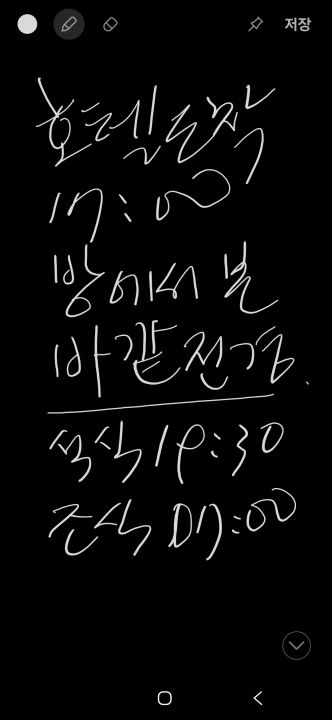 저장
호텔도착
17:00
방에서 본
바깥전경.
석식 19:30
조식 07:00